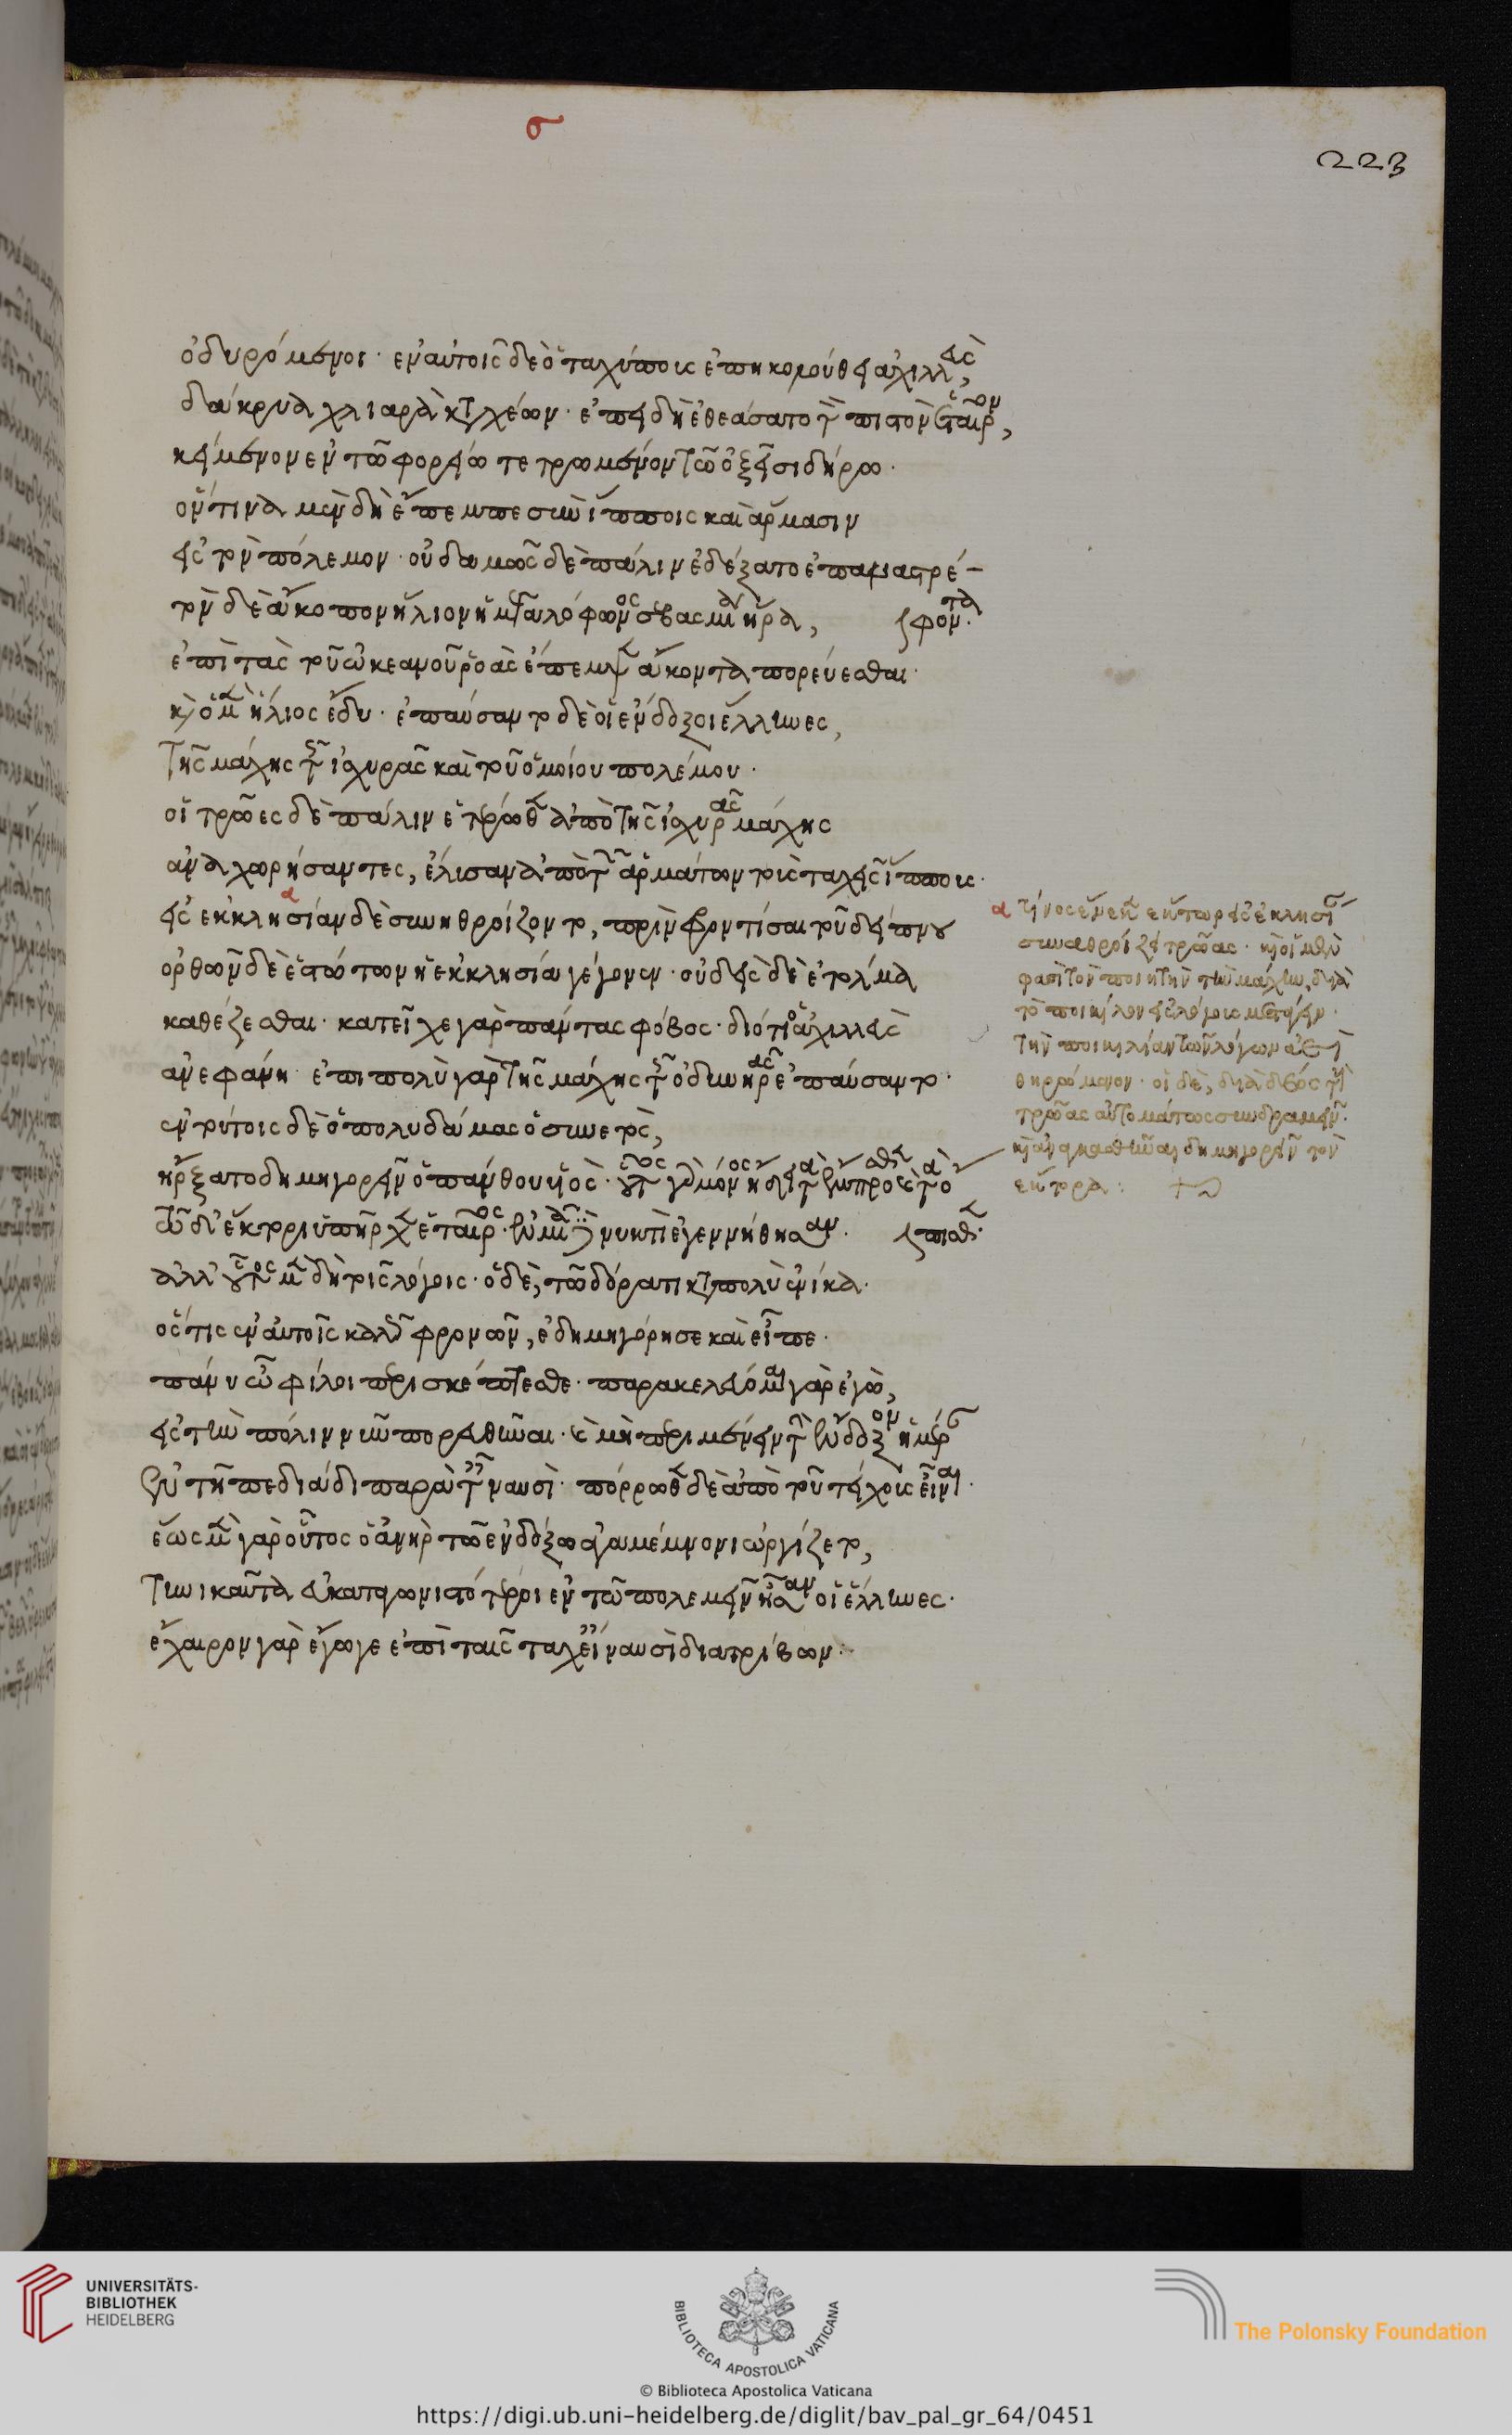 σ
223
ὀδυρόμενοι· ἐν αὐτοῖς δὲ ὁ ταχύπους ἐπηκολούθει ἀχιλλεὺς,
δάκρυα χλιαρὰ καταχέων· ἐπειδὴ ἐθεάσατο τὸν πιστὸν ἑταῖρον,
κείμενον ἐν τῶ φορείω τετρωμένον τῶ ὀξεῖ σιδήρω·
ὅντινα μὲν δὴ ἔπεμπε σὺν ἵπποις καὶ ἅρμασιν
εἰς τὸν πόλεμον· οὐδαμῶς δὲ πάλιν ἐδέξατο ἐπαναστρέ-
φοντα·
τὸν δὲ ἄκοπον ἥλιον ἡ μεγαλόφθαλμος σεβασμία ἥρα,
ἐπὶ τὰς τοῦ ὠκεανοῦ ῥοὰς ἔπεμψεν ἄκοντα πορεύεσθαι·
καὶ ὁ μὲν ἥλιος ἔδυ· ἐπαύσαντο δὲ οἱ ἔνδοξοι ἕλληνες,
τῆς μάχης τῆς ἰσχυρᾶς καὶ τοῦ ὁμοίου πολέμου·
οἱ τρῶες δὲ πάλιν ἑτέρωθεν ἀπὸ τῆς ἰσχυρᾶς μάχης
ἀναχωρήσαντες, ἔλυσαν ἀπὸ τῶν ἁρμάτων τοὺς ταχεῖς ἵππους·
εἰς ἐκκλησίαν δὲ συνηθροίζοντο, πρὶν φροντίσαι τοῦ δείπνου
ὀρθῶν δὲ ἑστώτων ἡ ἐκκλησία γέγονεν· οὐδεὶς δὲ ἐτόλμα
καθέζεσθαι· κατεῖχε γὰρ πάντας φόβος· διότι ὁ ἀχιλλεὺς
ἀνεφάνη· ἐπιπολὺ γὰρ τῆς μάχης τῆς ὀδυνηρᾶς ἐπαύσαντο·
ἐν τούτοις δὲ ὁ πολυδάμας ὁ συνετὸς,
ἤρξατο δημηγορεῖν ὁ πάνθου υἱὸς·
ἀλλ' οὗτος μὲν δὴ τοῖς λόγοις· ὁ δὲ, τῶ δόρατι καταπολὺ ἐνίκα·
ὅστις ἐν αὐτοῖς καλῶς φρονῶν, ἐδημηγόρησε καὶ εἶπε·
πάνυ ὦ φίλοι περισκέπτεσθε· παρακελεύομαι γὰρ ἐγὼ,
εἰς τὴν πόλιν νῦν πορευθῆναι· καὶ μὴ περιμένειν τὴν ἔνδοξον ἡμέραν
ἐν τῆ πεδιάδι παρὰ ταῖς ναυσὶ· πόρρωθεν δὲ ἀπὸ τοῦ τείχους εἶναι·
ἕως μὲν γὰρ οὗτος ὁ ἀνὴρ τῶ ἐνδόξω ἀγαμέμνονι ὠργίζετο,
τηνικαῦτα εὐκαταγωνιστότεροι ἐν τῶ πολεμεῖν ἦσαν οἱ ἕλληνες·
ἔχαιρον γὰρ ἔγωγε ἐπὶ ταῖς ταχείαις ναυσὶ διατρίβων:·
α τίνος ἕνεκεν ἕκτωρ εἰς ἐκκλησίαν
συναθροίζει τρῶας· καὶ οἱ μὲν
φασὶ τὸν ποιητὴν τὴν μάχην, διὰ
τὸ ποικίλον εἰς λόγους μεταγαγεῖν·
τὴν ποικιλίαν τῶν λόγων ἀεὶ
θηρώμενον· οἱ δὲ, διὰ δέος τοὺς
τρῶας αὐτομάτως συνδραμεῖν·
καὶ ἀναγκασθῆναι δημηγορεῖν τὸν
ἕκτορα:
UNIVERSITÄTS-
BIBLIOTHEK
HEIDELBERG
BIBLIOTECA APOSTOLICA VATICANA
© Biblioteca Apostolica Vaticana
The Polonsky Foundation
https://digi.ub.uni-heidelberg.de/diglit/bav_pal_gr_64/0451